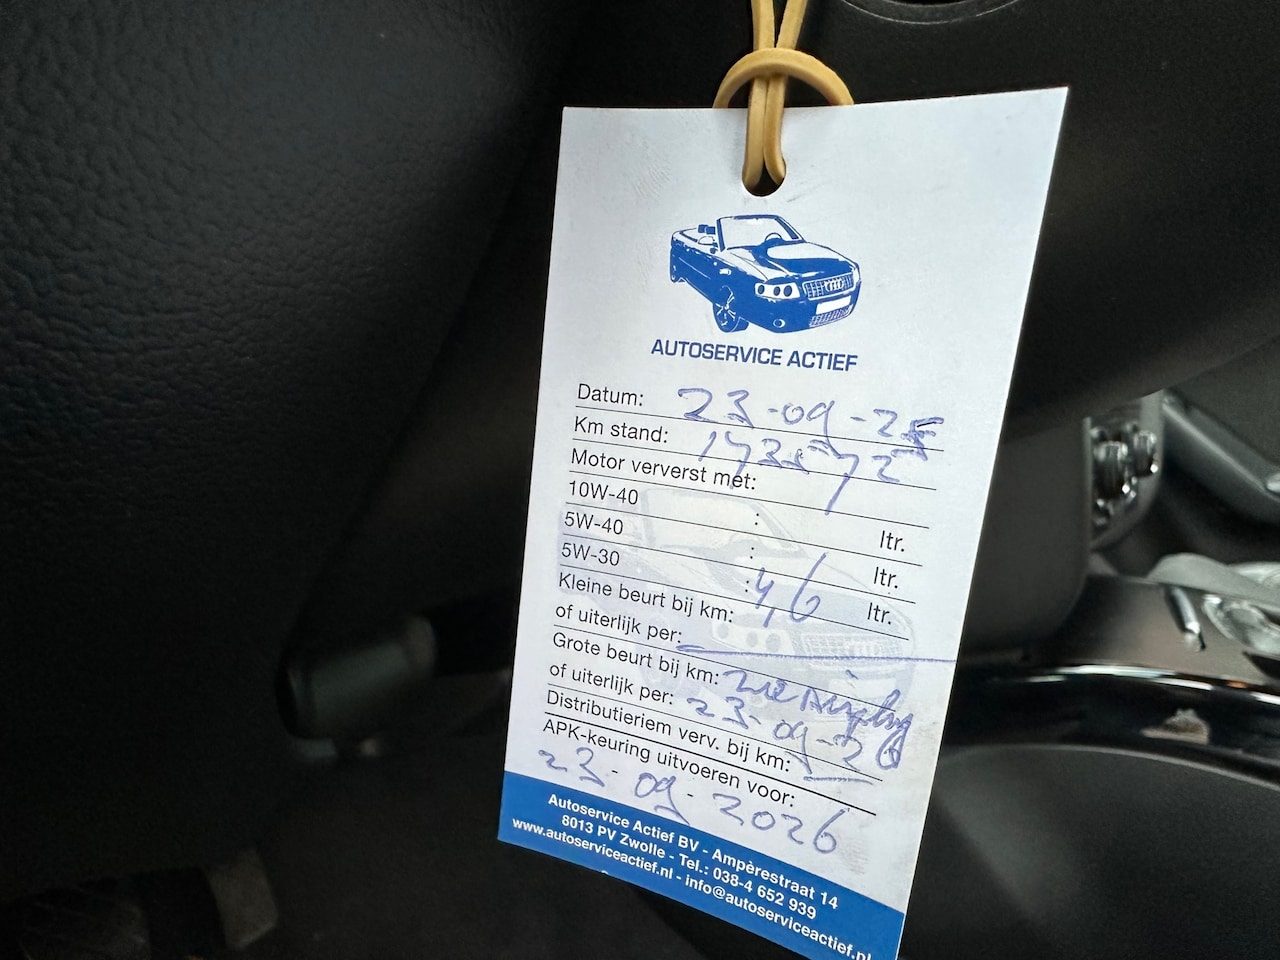 AUTOSERVICE ACTIEF
Datum: 23-09-25
Km stand:
Motor ververst met:
10W-40 : ltr.
5W-40 : ltr.
5W-30 : 4,6 ltr.
Kleine beurt bij km:
of uiterlijk per:
Grote beurt bij km:
of uiterlijk per: 23-09-26
Distributieriem verv. bij km:
APK-keuring uitvoeren voor:
23-09-2026
Autoservice Actief BV - Ampèrestraat 14
8013 PV Zwolle - Tel.: 038-4 652 939
www.autoserviceactief.nl - info@autoserviceactief.nl